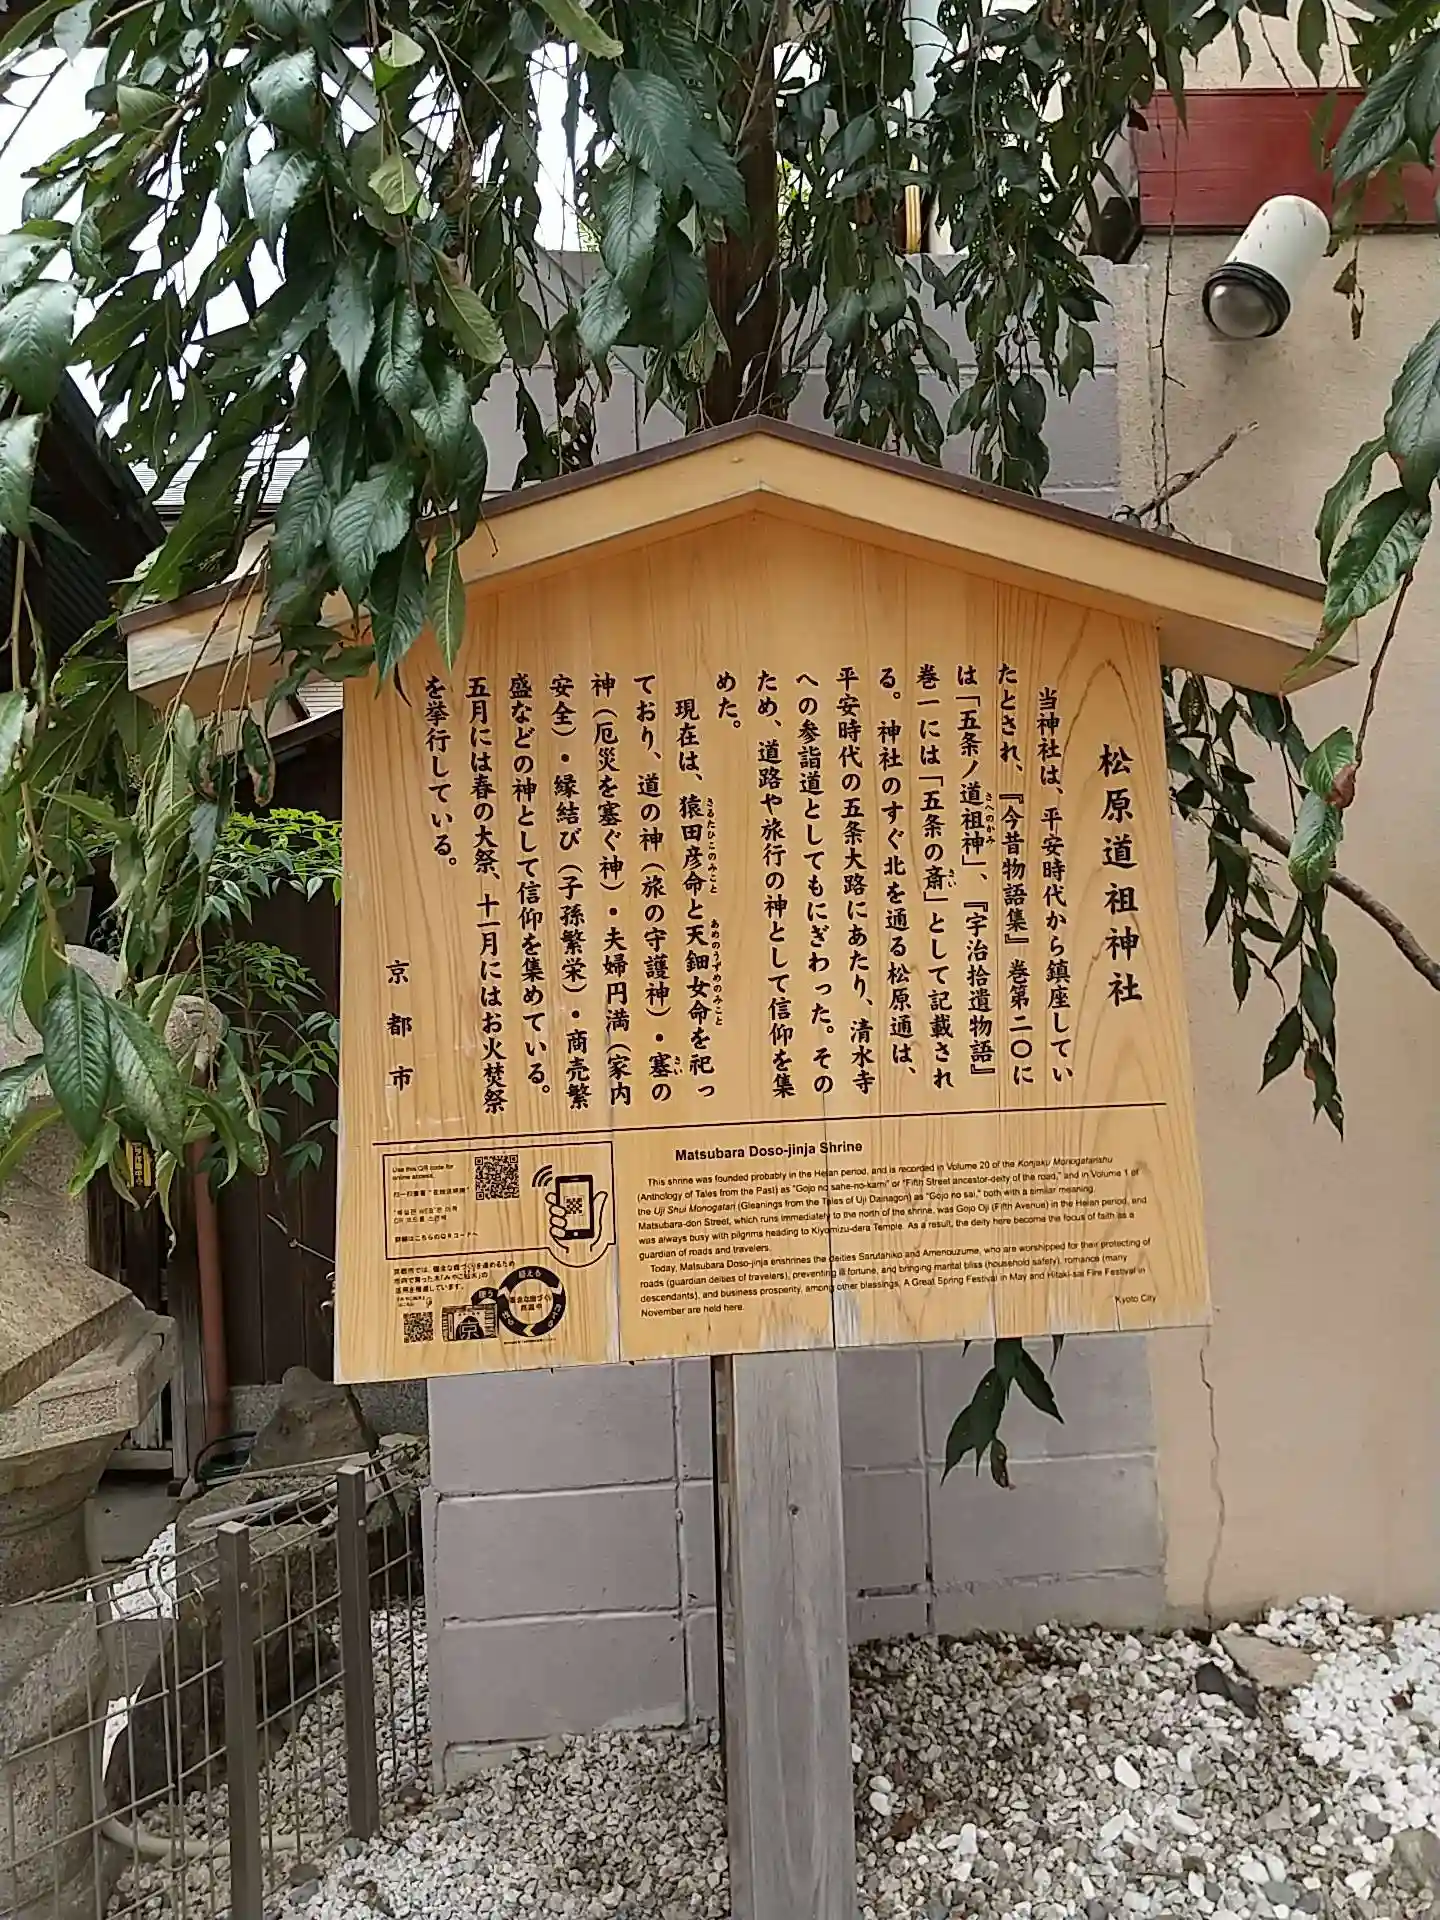 松原道祖神社
当神社は、平安時代から鎮座してい
たとされ、『今昔物語集』巻第二〇に
は「五条ノ道祖神」、『宇治拾遺物語』
さへのかみ
巻一には「五条の斎」として記載され
さい
る。神社のすぐ北を通る松原通は、
平安時代の五条大路にあたり、清水寺
への参詣道としてもにぎわった。その
ため、道路や旅行の神として信仰を集
めた。
現在は、猿田彦命と天鈿女命を祀っ
さるたひこのみこと あめのうずめのみこと
ており、道の神（旅の守護神）・塞の
さい
神（厄災を塞ぐ神）・夫婦円満（家内
安全）・縁結び（子孫繁栄）・商売繁
盛などの神として信仰を集めている。
五月には春の大祭、十一月にはお火焚祭
を挙行している。
京都市
Matsubara Doso-jinja Shrine
This shrine was founded probably in the Heian period, and is recorded in Volume 20 of the Konjaku Monogatarishu
(Anthology of Tales from the Past) as "Gojo no sahe-no-kami" or "Fifth Street ancestor-deity of the road," and in Volume 1 of
the Uji Shui Monogatari (Gleanings from the Tales of Uji Dainagon) as "Gojo no sai," both with a similar meaning.
Matsubara-dori Street, which runs immediately to the north of the shrine, was Gojo Oji (Fifth Avenue) in the Heian period, and
was always busy with pilgrims heading to Kiyomizu-dera Temple. As a result, the deity here become the focus of faith as a
guardian of roads and travelers.
Today, Matsubara Doso-jinja enshrines the deities Sarutahiko and Amenouzume, who are worshipped for their protecting of
roads (guardian deities of travelers), preventing ill fortune, and bringing marital bliss (household safety), romance (many
descendants), and business prosperity, among other blessings. A Great Spring Festival in May and Hitaki-sai Fire Festival in
November are held here.
Kyoto City
Use this QR code for
online access.
詳細はこちらのQRコードへ
京都市では、健全な森づくりを進めるため
市内で育った木「みやこ杣木」の
活用を推進しています。
京